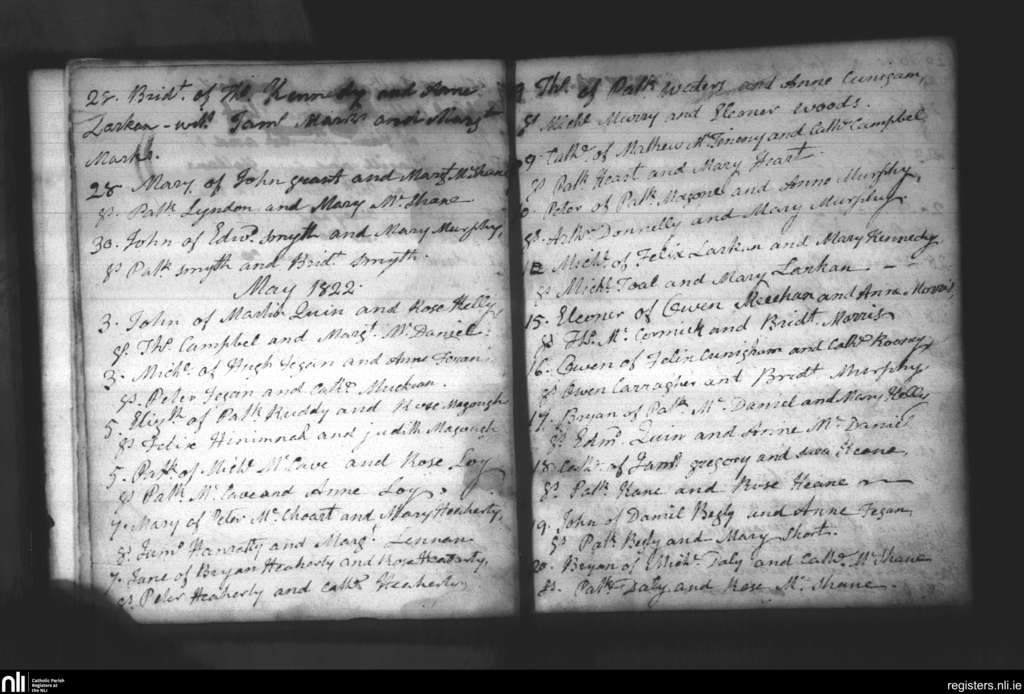 28. Bridt. of Ths. Kennedy and Anne
Larkan - witts. Jams. Marks and Margt.
Marks.
28. Mary of John grant and Margt. Mc. Shane
Ss. Patk. Lyndon and Mary Mc. Shane
30. John of Edwd. Smyth and Mary Murphy,
Ss. Patk. Smyth and Bridt. Smyth.
May 1822.
3. John of Martin Quin and Rose Kelly
Ss. Ths. Campbel and Margt. Mc. Daniel.
3. Michl. of Hugh Fegan and Anne
Ss. Peter Fegan and Cathe.
5. of Patk. Ruddy and Rose Magough
Ss. Felix and judith Magough
5. Patk. of Michl. Mc. Cave and Rose Loy
Ss. Patk. Mc. Cave and Anne Loy.
7. Mary of Peter Mc. and Mary Heaherty,
Ss. Jams. Hanretty and Marg. Lennon
7. Jane of Bryan Heaherty and Rose Heaherty,
Ss. Peter Heaherty and Cathe. Heaherty,
9 Ths. of Patk. Waters and Anne Cunigam,
Ss. Michl. Murry and Eleoner Woods.
9. Cathe. of Mathew Mc. and Cathe. Campbel
Ss. Patk. Heart and Mary Heart
Peter of Patk. Magone and Anne Murphy,
Ss. Arthr. Donnelly and Mary Murphy
12 Michl. of Felix Larkan and Mary Kennedy
Ss. Michl. Toal and Mary Larkan -
15. Eleoner of Owen Meehan and Anne Morris,
Ss. Ths. Mc. Cormick and Bridt. Morris
16. Owen of Felix Cunigham and Cathe. Rooney
Ss. Owen Carragher ant Bridt. Murphy
17. Bryan of Patk. Mc. Daniel and Mary Kelly
Ss. Edmd. Quin and Anne Mc. Daniel
18. Cathe. of Jams. gregory and Keane,
Ss. Patk. Kane and Rose Keane
19. John of Daniel Begly and Anne Fegan,
Ss. Patk. Begly and Mary Short.
20. Bryan of Michl. Daly and Cathe. Mc. Shane
Ss. Patk. Daly and Rose Mc. Shane
nli Catholic Parish
Registers at
the NLI
registers.nli.ie